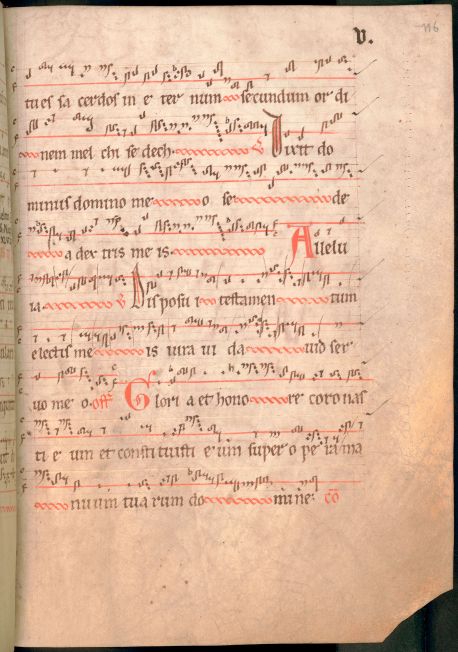 v.
116
tu es sa cerdos in e ter num secundum or di
nem mel chi se dech. V Dixit do
minus domino me o se de
a dex tris me is. Allelu
ia. V Disposui testamen tum
electis me is iura ui da uid ser
uo me o. off. Glori a et hono re coronas
ti e um et consti tuisti eum super o pe ra ma
nuum tua rum do mine. co